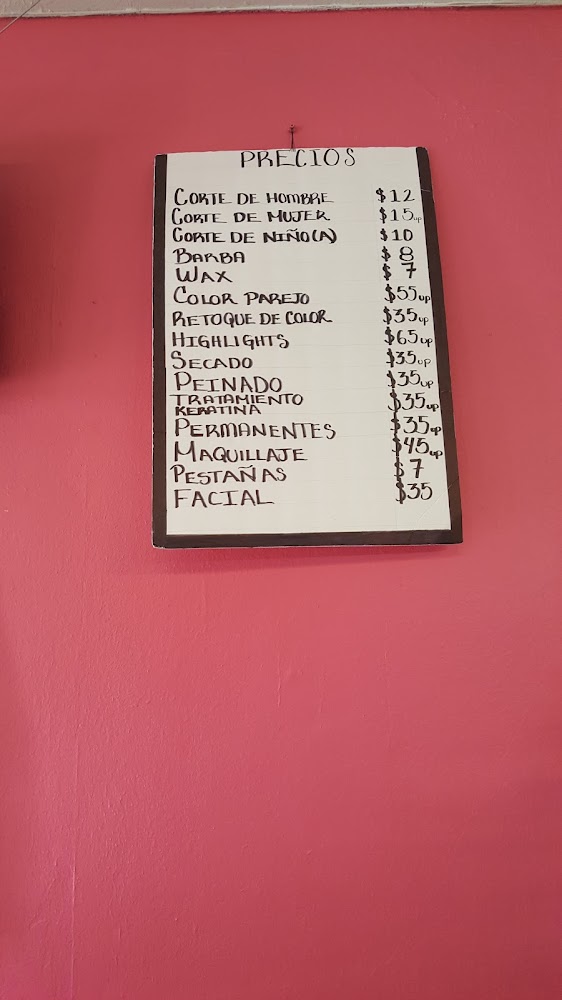 PRECIOS
CORTE DE HOMBRE $12
CORTE DE MUJER $15up
CORTE DE NIÑO(A) $10
BARBA $8
WAX $7
COLOR PAREJO $55up
RETOQUE DE COLOR $35up
HIGHLIGHTS $65up
SECADO $35up
PEINADO $35up
TRATAMIENTO
KERATINA $35up
PERMANENTES $35up
MAQUILLAJE $45up
PESTAÑAS $7
FACIAL $35